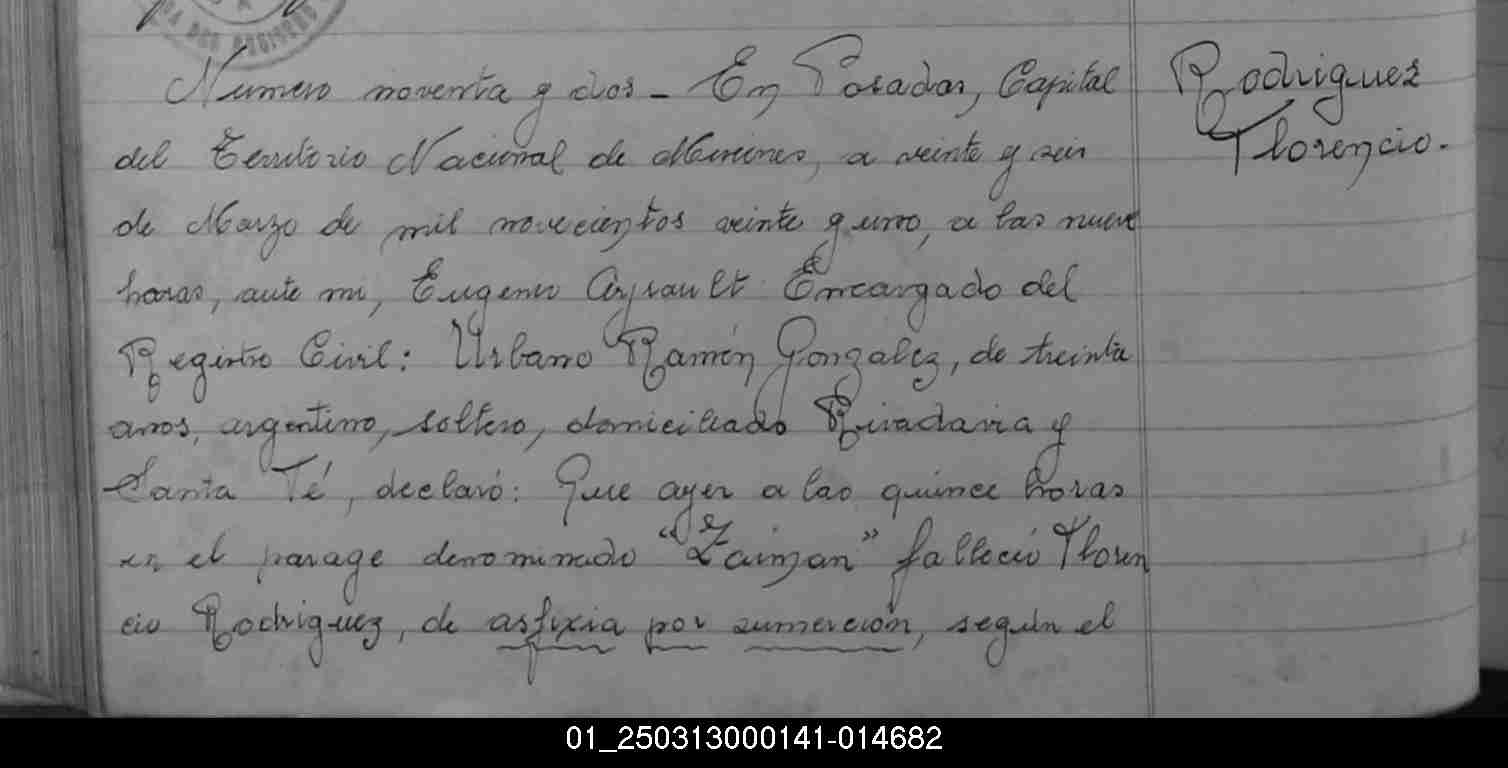 Numero noventa y dos - En Posadas, Capital
del Territorio Nacional de Misiones, a veinte y seis
de Marzo de mil novecientos veinte y uno, a las nueve
horas, ante mi, Eugenio Ayrault Encargado del
Registro Civil: Urbano Ramón Gonzalez, de treinta
anos, argentino, soltero, domiciliado Rivadavia y
Santa Fé, declaró: Que ayer a las quince horas
en el parage denominado "Zaiman" falleció Floren
cio Rodriguez, de asfixia por sumercion, según el
Rodriguez
Florencio.
01_250313000141-014682